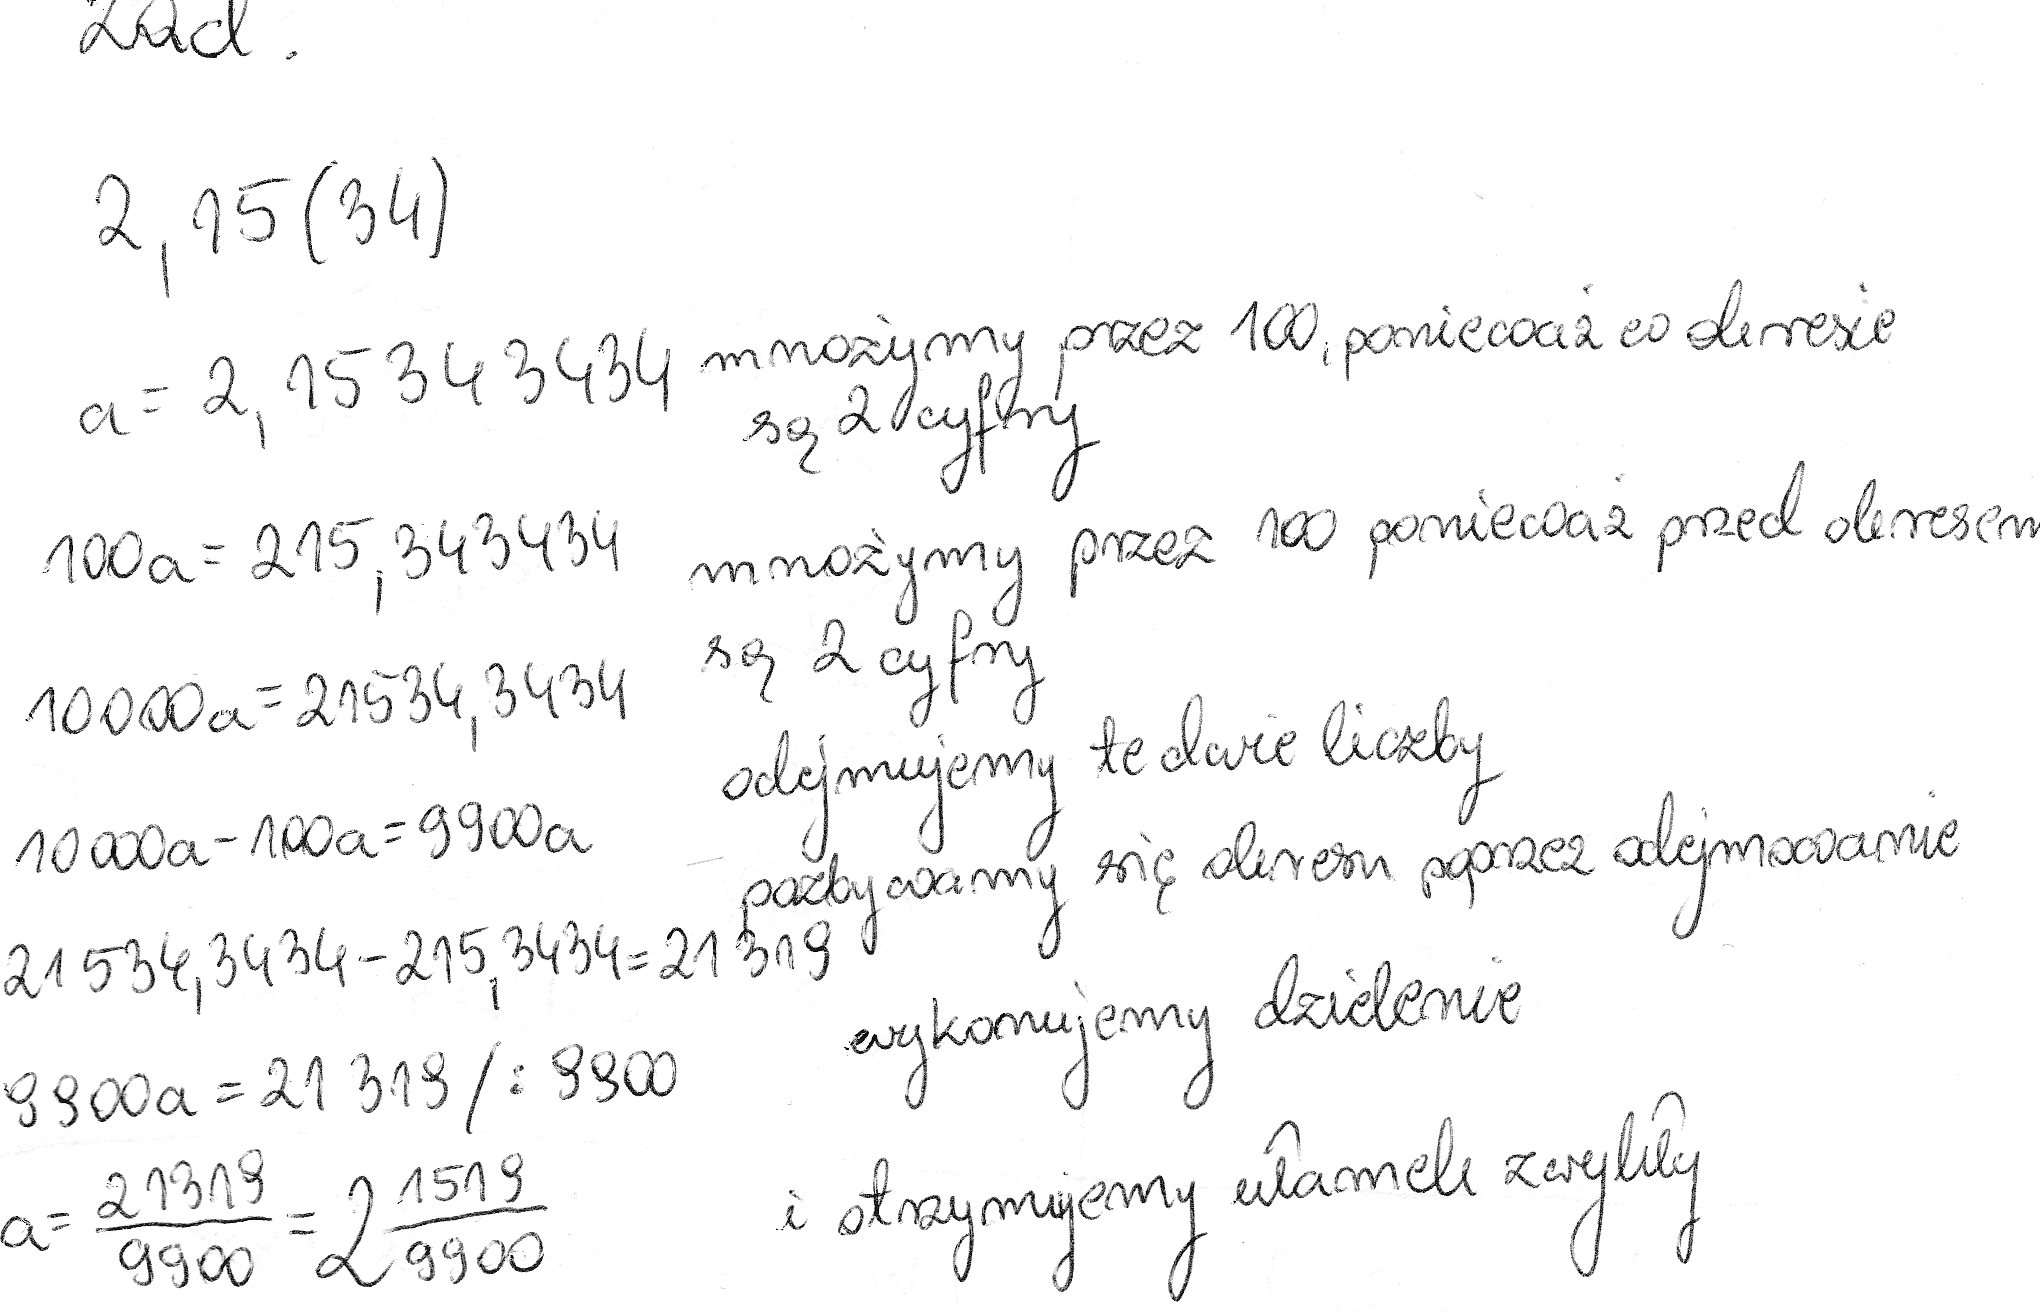 Zad.
2,15(34)
a=2,1534 3434 mnożymy przez 100, ponieważ co okresie
są 2 cyfry
100a=215,343434 mnożymy przez 100 ponieważ przed okresem
są 2 cyfry
10000a=21534,3434
odejmujemy te dwie liczby
10000a-100a=9900a
pozbywamy się okresu poprzez odejmowanie
21534,3434-215,3434=21319
wykonujemy dzielenie
9900a=21319/:9900
a=21319/9900=2 1519/9900 i otrzymujemy ułamek zwykły